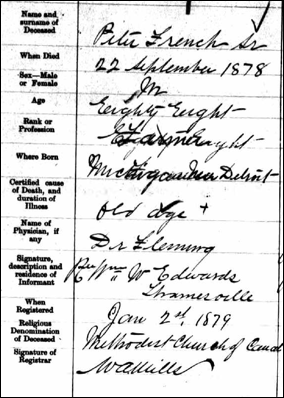 Name and
surname of
Deceased
Peter French Sr
When Died
22 September 1878
Sex—Male
or Female
M
Age
Eighty Eight
Rank or
Profession
Farmer
Where Born
Michigan Near Detroit
Certified cause
of Death, and
duration of
Illness
Old Age +
Name of
Physician, if
any
Dr Fleming
Signature,
description and
residence of
Informant
Rev Wm W Edwards
When
Registered
Jan 2nd, 1879
Religious
Denomination
of Deceased
Methodist Church of Canad
Signature of
Registrar